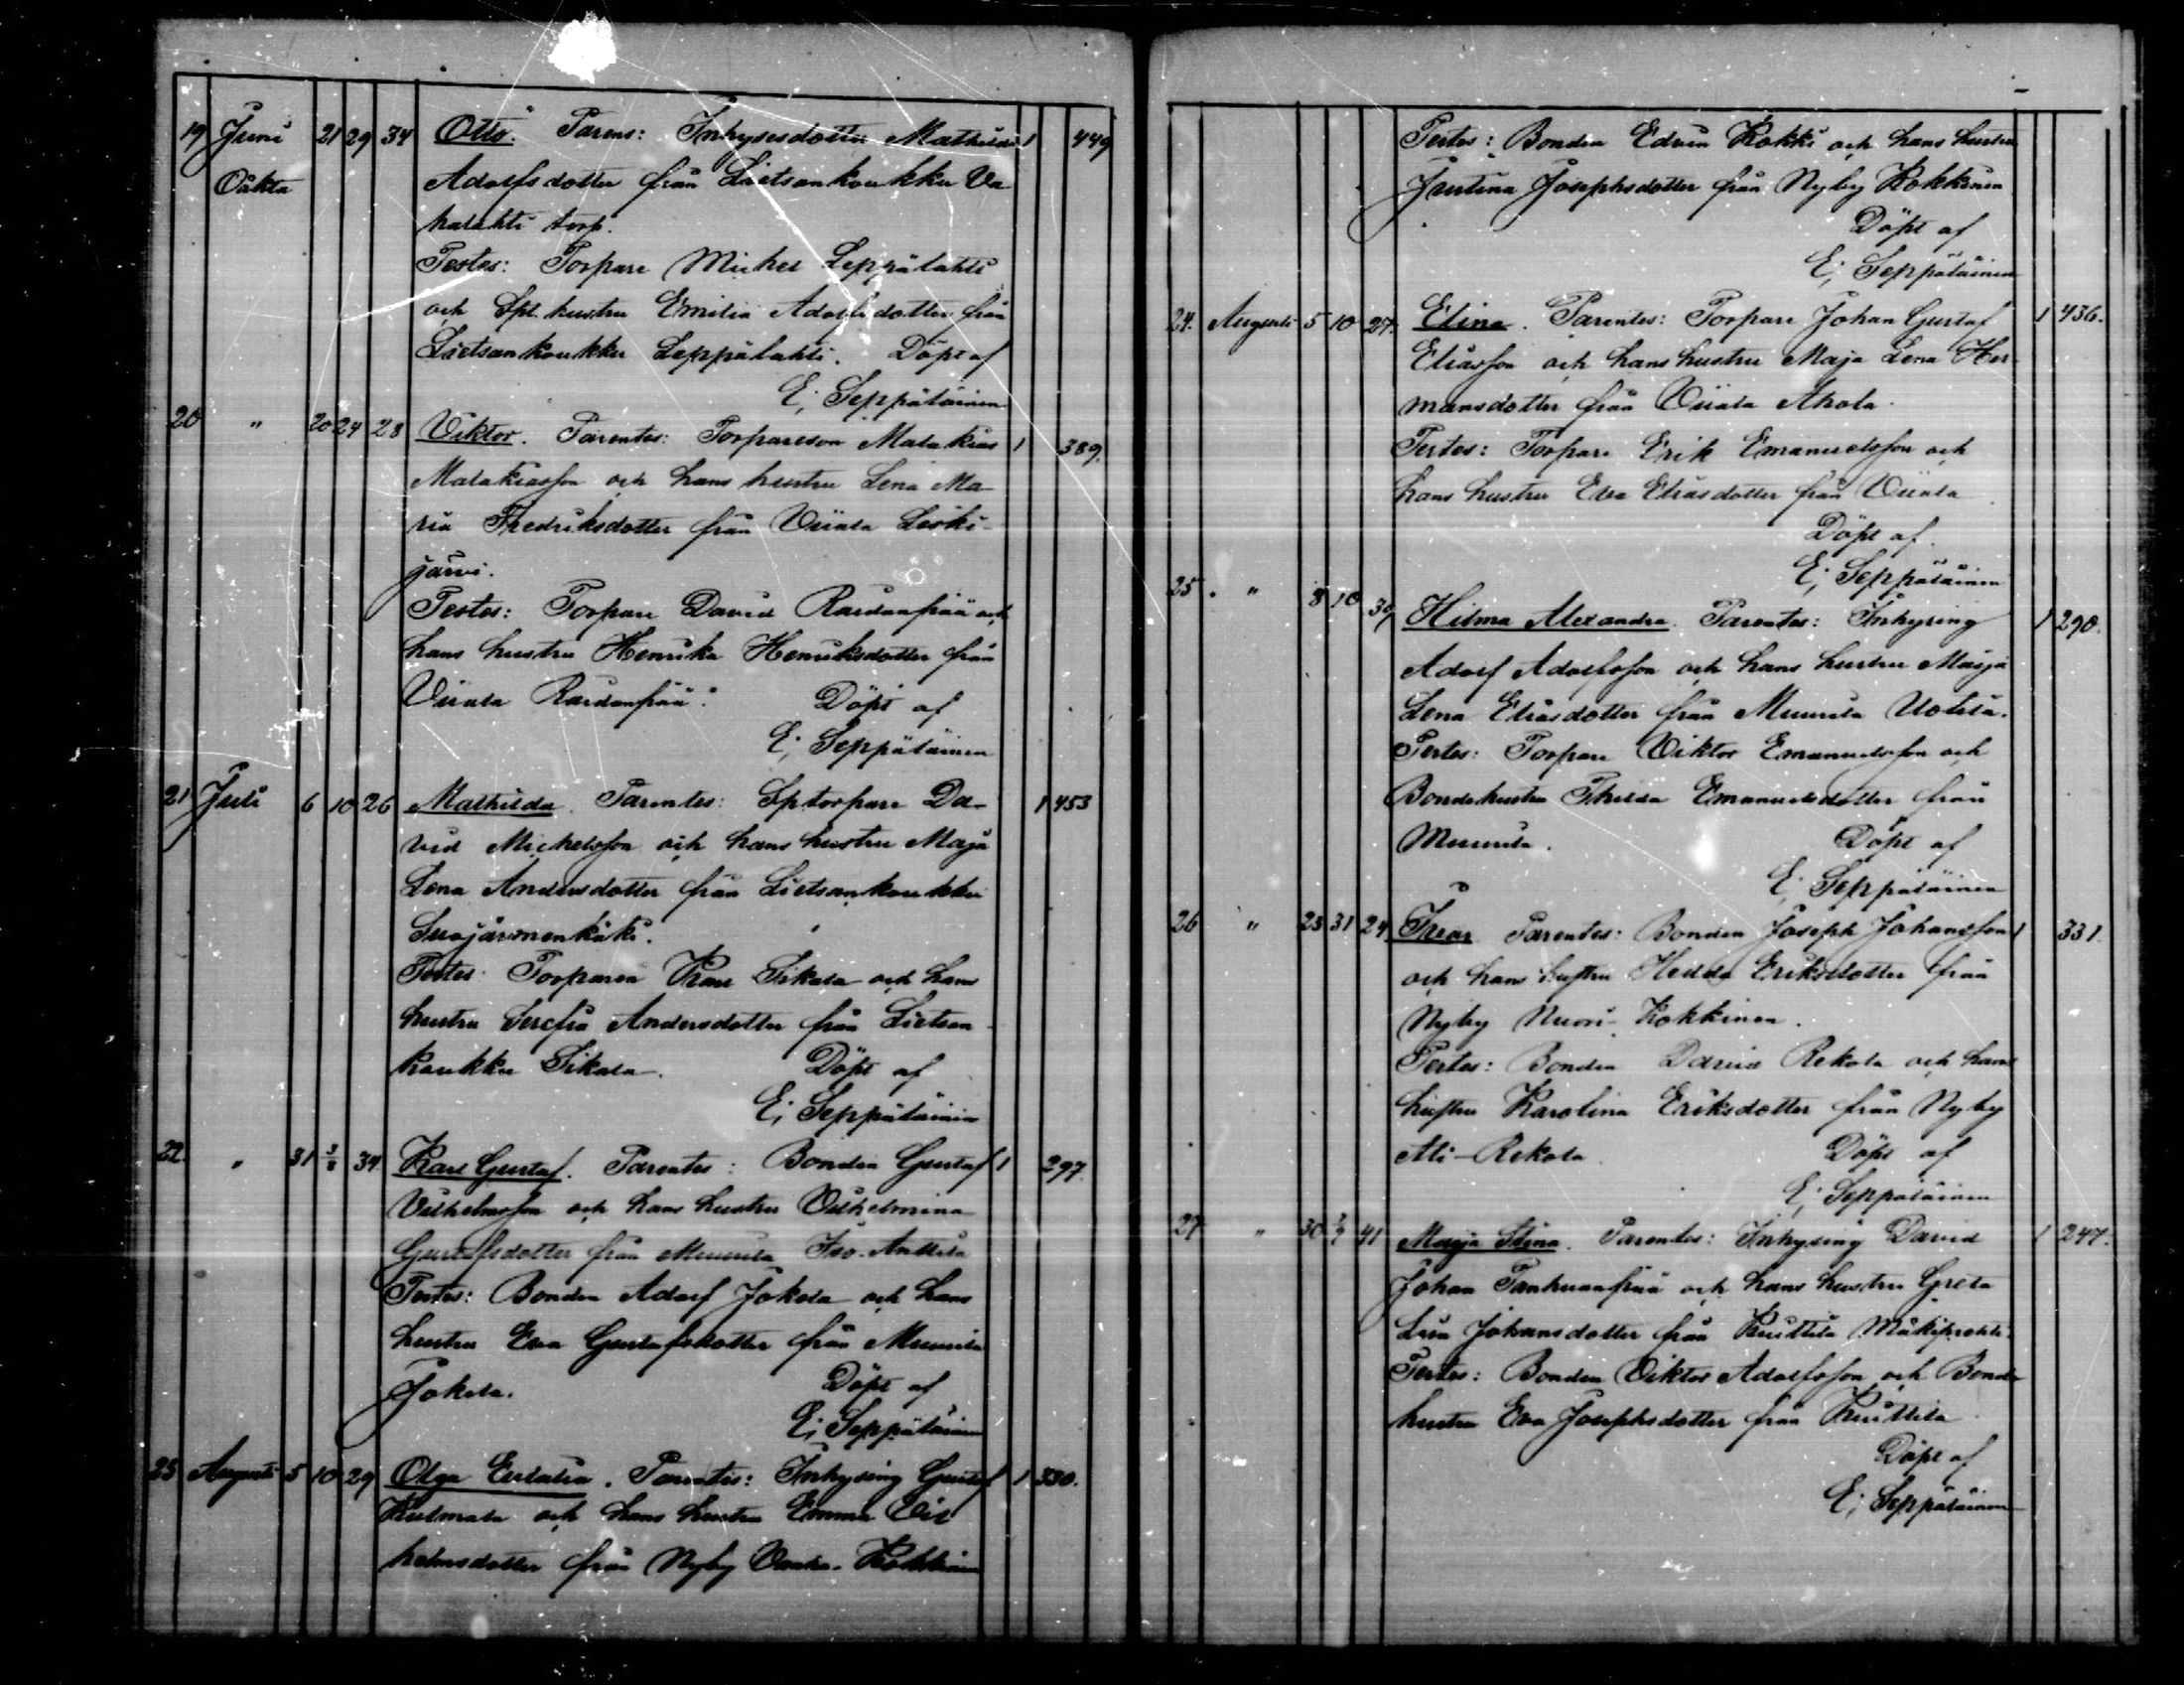 19 Juni 21 29 34 Otto. Parens: Inhysesdotter Mathilda 1 449
Oäkta Adolfsdotter från Lietsankoukku Va
halahti torp.
Testes: Torpare Michel Leppälahti
och Spt. hustru Emilia Adolfsdotter från
Lietsankoukku Leppälahti. Döpt af
E; Seppäläinen
20 " 20 24 28 Viktor. Parentes: Torpareson Malakias 1 389.
Malakiasson och hans hustru Lena Ma-
ria Fredriksdotter från Viiala Leski-
järvi.
Testes: Torpare David Raudanpää och
hans hustru Henrika Henriksdotter från
Viiala Raudanpää. Döpt af
E; Seppäläinen
21 Juli 6 10 26 Mathilda. Parentes: Sptorpare Da- 1 453
vid Michelsson och hans hustru Maja
Lena Andersdotter från Lietsankoukku
Suojärvenkäki.
Testes: Torparen Karl Sikala och hans
hustru Serefia Andersdotter från Lietsan
koukku Sikala. Döpt af
E; Seppäläinen
22. " 31 3/8 34 Karl Gustaf. Parentes: Bonden Gustaf 1 297.
Vilhelmsson och hans hustru Vilhelmina
Gustafsdotter från Muurila Iso-Anttila
Testes: Bonden Adolf Jokela och hans
hustru Eva Gustafsdotter från Muurila
Jokela. Döpt af
E; Seppäläinen
23 Augusti 5 10 29 Olga Eulalia. Parentes: Inhysing Gustaf 1 330.
Kulmala och hans hustru Emma Vil
helmsdotter från Nyby Vanha-Kokkinen
Testes: Bonden Edvin Kokki och hans hustru
Justina Josephsdotter från Nyby Kokkinen
Döpt af
E; Seppäläinen
24. Augusti 5 10 27. Elina. Parentes: Torpare Johan Gustaf 1 436.
Eliasson och hans hustru Maja Lena Her
mansdotter från Viiala Ahola.
Testes: Torpare Erik Emanuelsson och
hans hustru Eva Eliasdotter från Viiala
Döpt af
E; Seppäläinen
25. " 8 10 30 Hilma Alexandra. Parentes: Inhysing 1 290.
Adolf Adolfsson och hans hustru Maja
Lena Eliasdotter från Muurila Uotila.
Testes: Torpare Viktor Emanuelsson och
Bondehustru Thilda Emanuelsdotter från
Muurila. Döpt af
E; Seppäläinen
26 " 23 31 24 Ivar Parentes: Bonden Joseph Johansson 1 331.
och hans hustru Hedda Eriksdotter från
Nyby Nuori-Kokkinen.
Testes: Bonden David Rekola och hans
hustru Karolina Eriksdotter från Nyby
Ali-Rekola. Döpt af
E; Seppäläinen
27 " 30 7/9 41 Maja Stina. Parentes: Inhysing David 1 247.
Johan Tanhuanpää och hans hustru Greta
Lisa Johansdotter från Kuittila
Testes: Bonden Viktor Adolfsson och Bonde
hustru Eva Josephsdotter från Kuittila
Döpt af
E; Seppäläinen